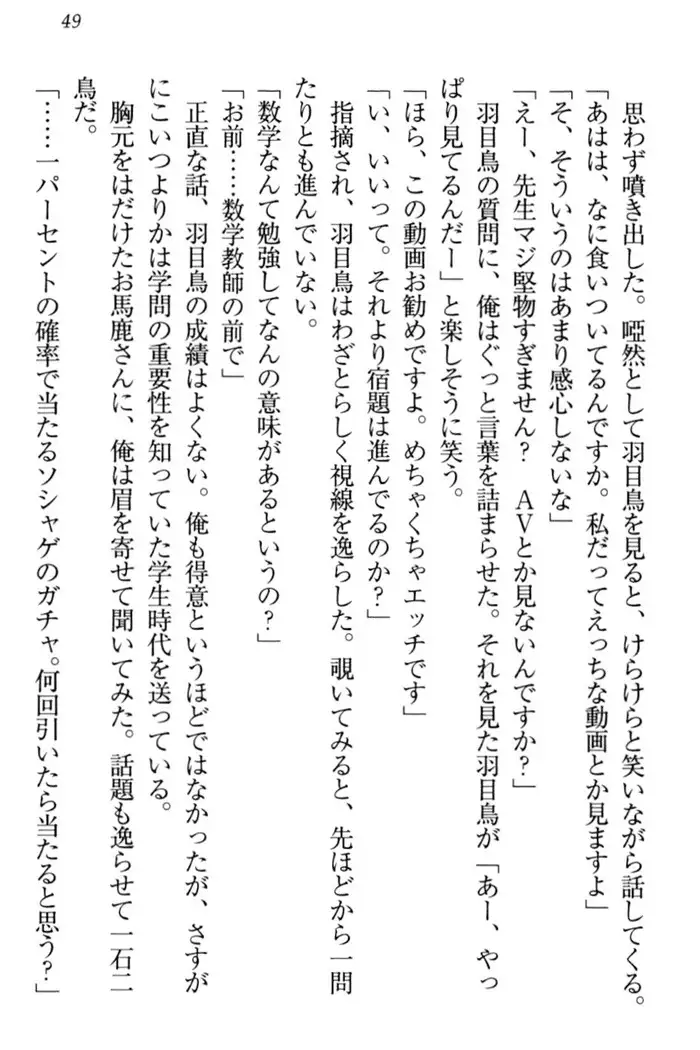 49
思わず噴き出した。啞然として羽目鳥を見ると、けらけらと笑いながら話してくる。
「あはは、なに食いついてるんですか。私だってえっちな動画とか見ますよ」
「そ、そういうのはあまり感心しないな」
「えー、先生マジ堅物すぎません？　ＡＶとか見ないんですか？」
羽目鳥の質問に、俺はぐっと言葉を詰まらせた。それを見た羽目鳥が「あー、やっ
ぱり見てるんだー」と楽しそうに笑う。
「ほら、この動画お勧めですよ。めちゃくちゃエッチです」
「い、いいって。それより宿題は進んでるのか？」
指摘され、羽目鳥はわざとらしく視線を逸らした。覗いてみると、先ほどから一問
たりとも進んでいない。
「数学なんて勉強してなんの意味があるというの？」
「お前……数学教師の前で」
正直な話、羽目鳥の成績はよくない。俺も得意というほどではなかったが、さすが
にこいつよりかは学問の重要性を知っていた学生時代を送っている。
胸元をはだけたお馬鹿さんに、俺は眉を寄せて聞いてみた。話題も逸らせて一石二
鳥だ。
「……一パーセントの確率で当たるソシャゲのガチャ。何回引いたら当たると思う？」